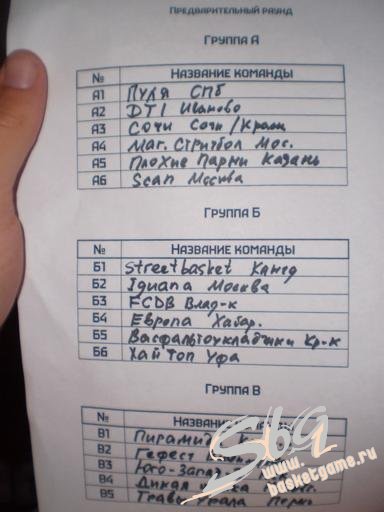 ПРЕДВАРИТЕЛЬНЫЙ РАУНД
ГРУППА А
№ НАЗВАНИЕ КОМАНДЫ
А1 Пуля СПб
А2 DTI Иваново
А3 Сочи Сочи/Крам
А4 Маг. Стритбол Мос.
А5 Плохие Парни Казань
А6 Scan Москва
ГРУППА Б
№ НАЗВАНИЕ КОМАНДЫ
Б1 Streetbasket
Б2 Iguana Москва
Б3 FCDB Влад-к
Б4 Европа Хабар.
Б5 Васфальтоукладчики Кр-к
Б6 Хай Топ Уфа
ГРУППА В
№ НАЗВАНИЕ
В1 Пирамид
В2 Гефест
В3 Юго-Запад
В4 Дикая
В5 Трава Урала Пермь
Sba
www.basketgame.ru